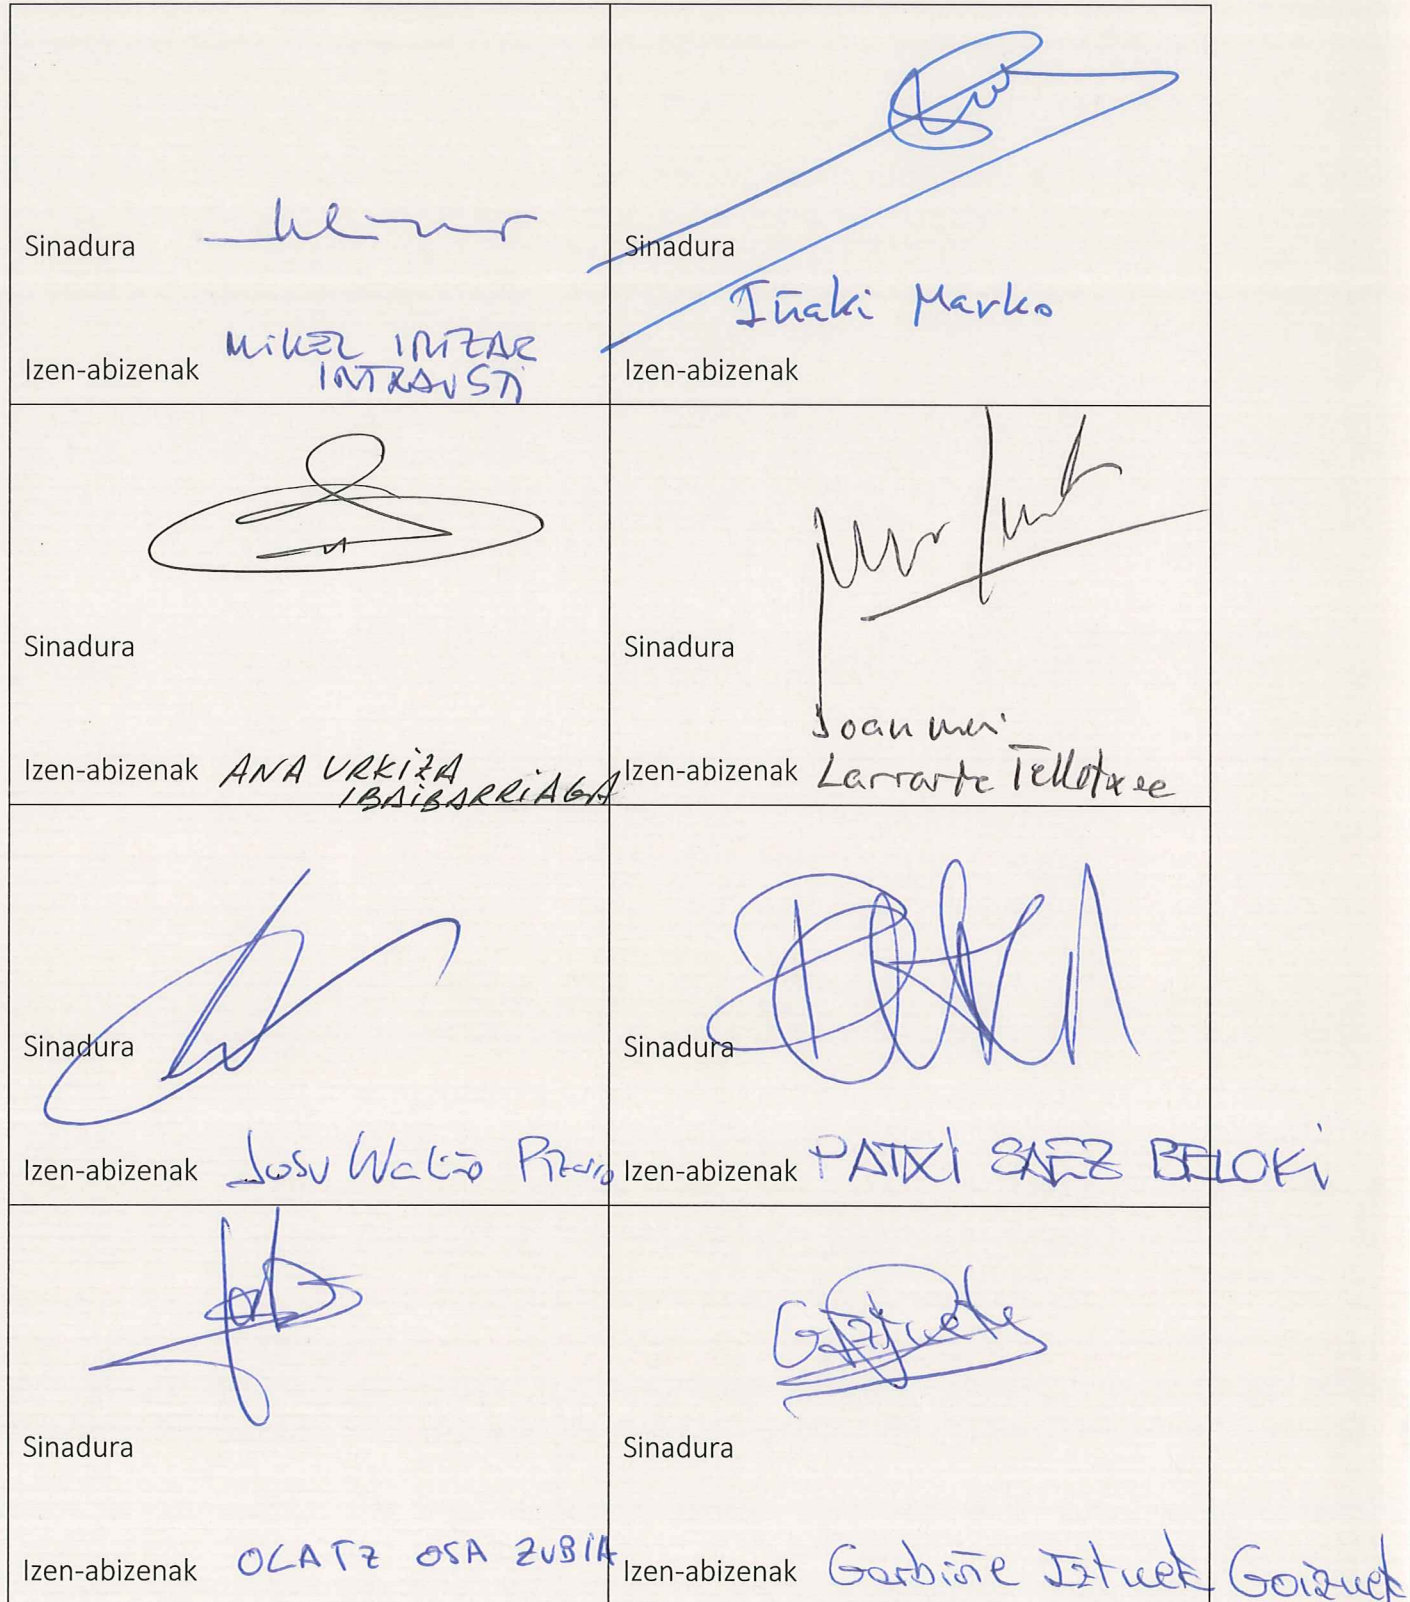 Sinadura
Izen-abizenak MIKEL IRIZAR
INTXAUSTI
Sinadura
Iñaki Marko
Izen-abizenak
Sinadura
Izen-abizenak ANA URKIZA
IBAIBARRIAGA
Sinadura
Joan mari
Izen-abizenak Larrarte Telletxea
Sinadura
Izen-abizenak Josu Waliño Pizarro
Sinadura
Izen-abizenak PATXI SAEZ BELOKI
Sinadura
Izen-abizenak OLATZ OSA ZUBIA
Sinadura
Izen-abizenak Garbiñe